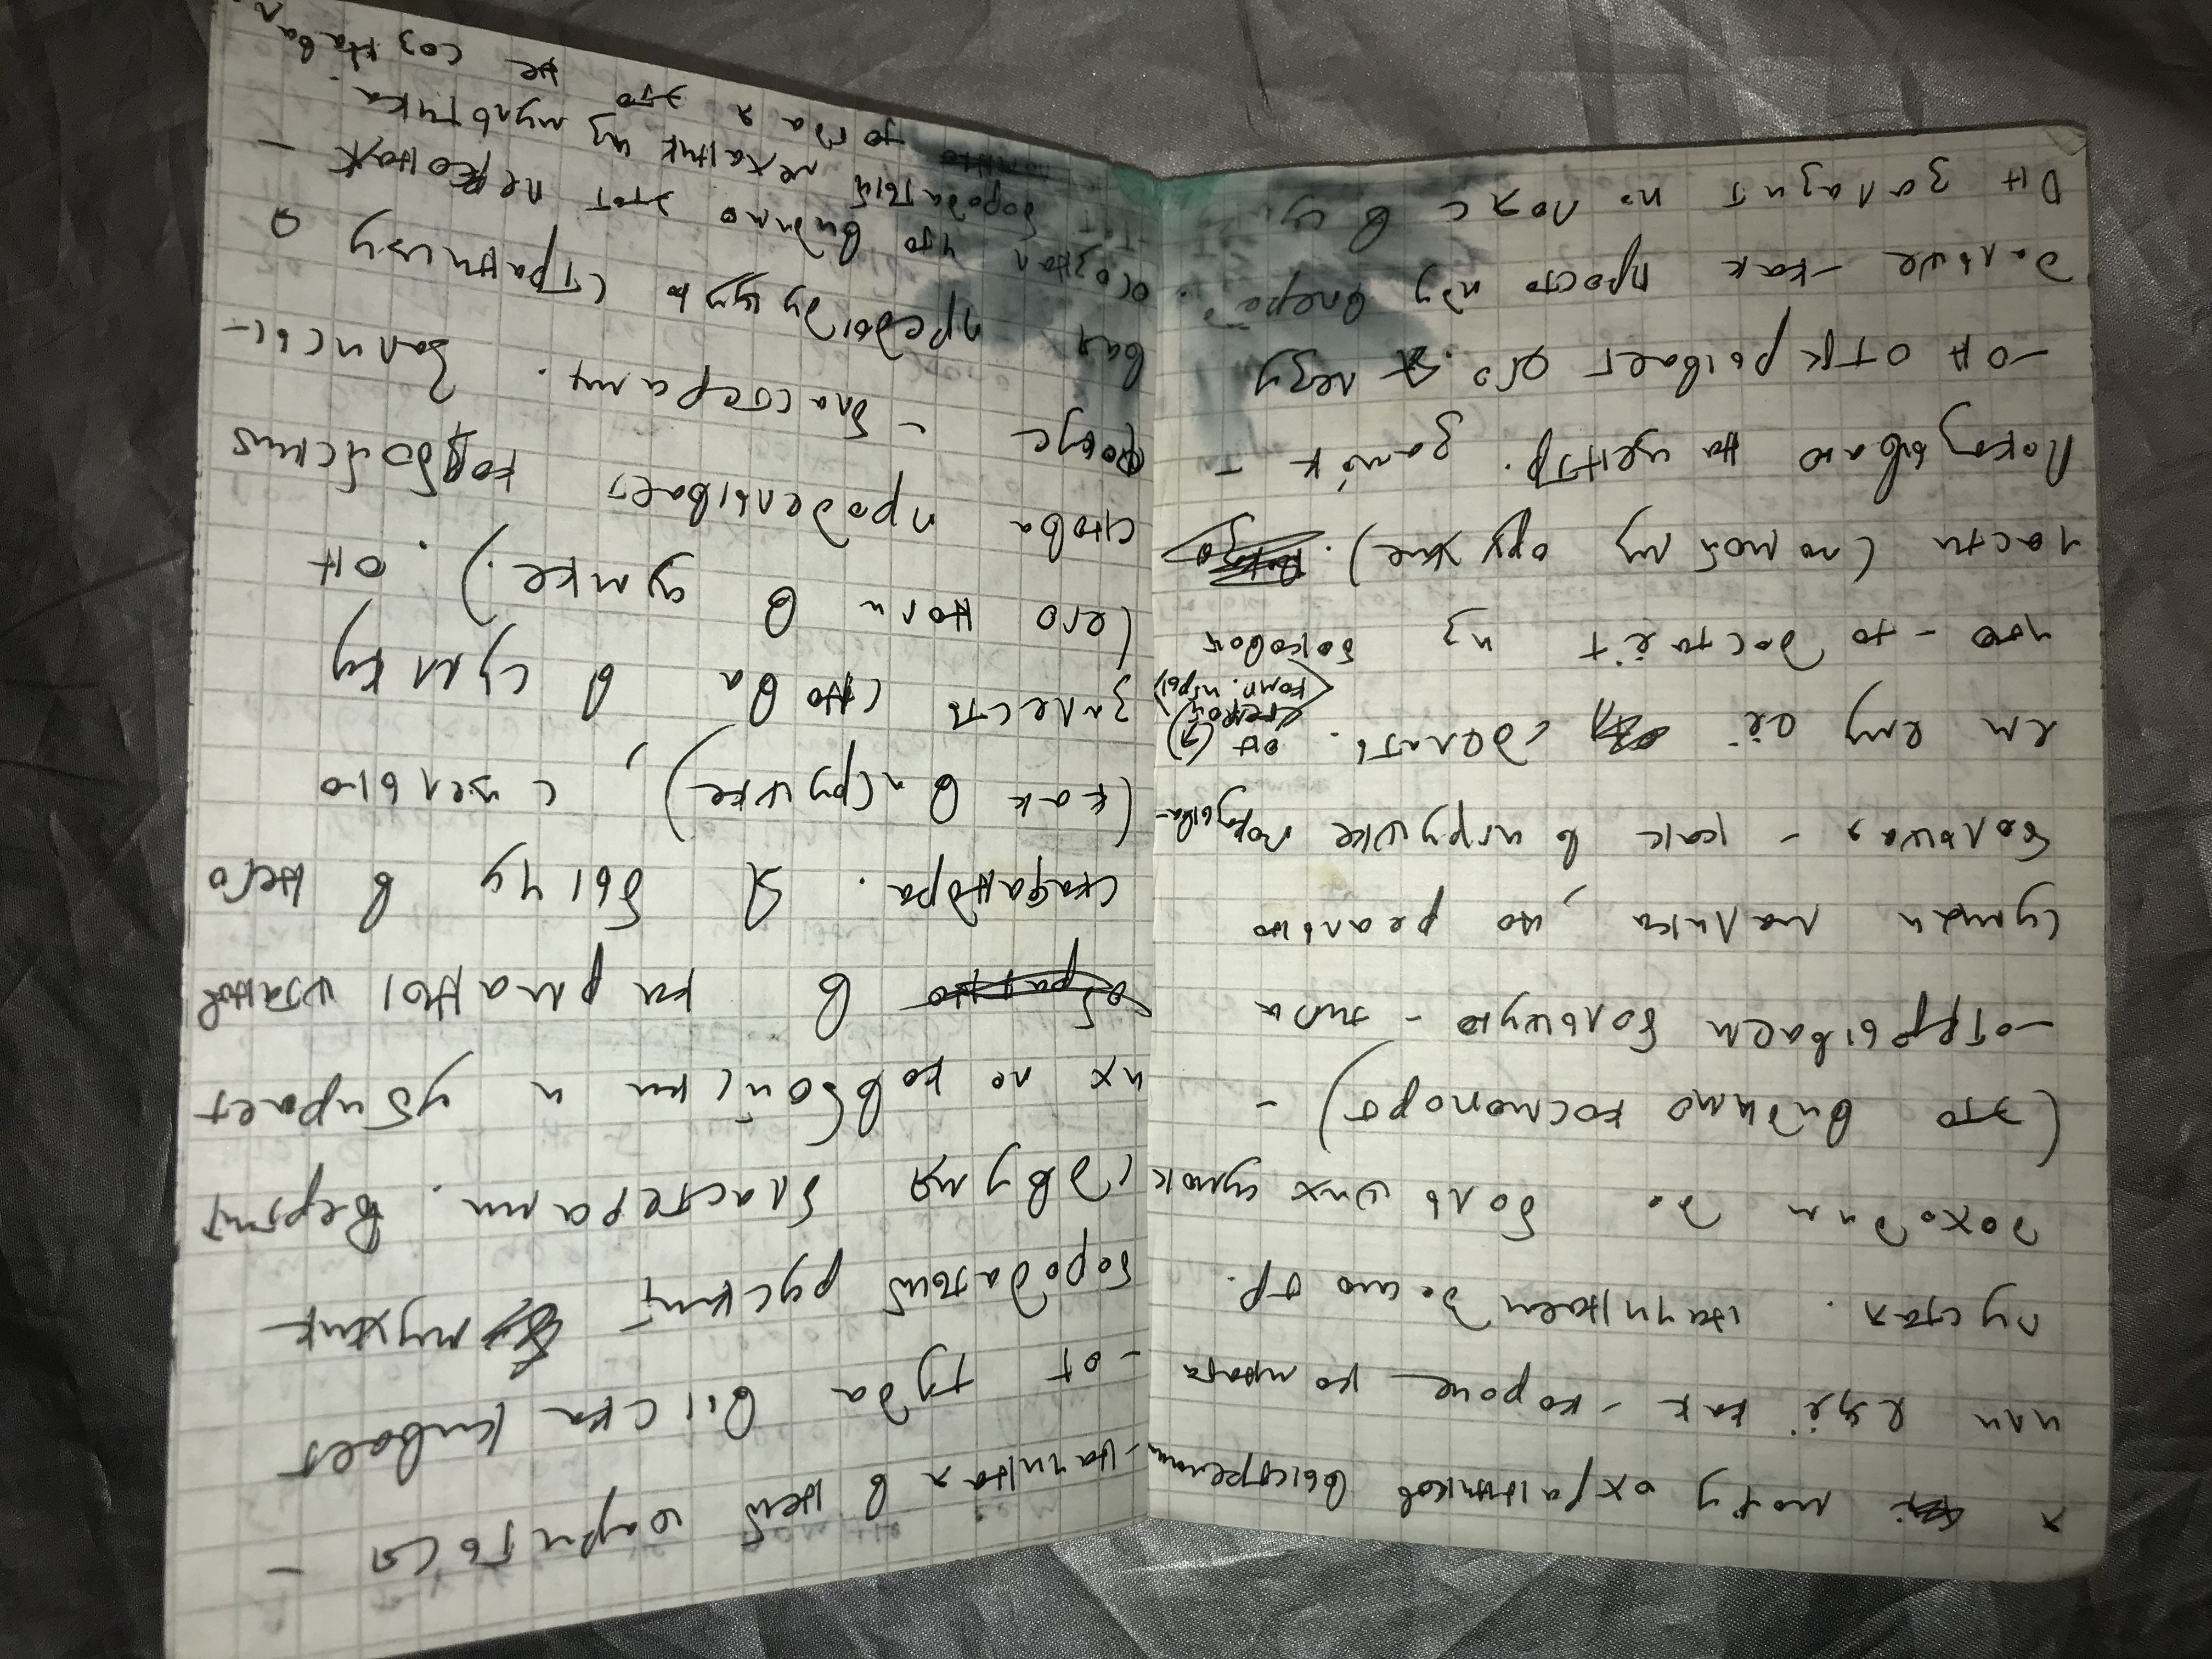 я могу охранников выстрелить
или ещё как - короче комната
пустая. начинаем досмотр.
доходим до больших сумок
(это видимо космопорт) -
- открываем большую - типа
сумки малика, но реально
большая - как в игрушке показыва-
ем ему её сделать. он (↗)
<герой
комп. игры>
что-то достаёт из боковой
части (по моему оружие).
Показываю на центр. замо́к -
- он открывает его. я лезу
дальше - как просто иду вперёд.
Он залазит по пояс в
- начиная в ней шариться -
- от туда выскакивает
бородатый руский мужик
с двумя бластерами. Вертит
их по ковбойски и убирает
обратно в карманы штанов
скафандра. Я бычу в него
(как в игрушке), с целью
залесть снова в сумку
(его ноги в сумке.). он
снова проделывает ковбойский
фокус - бластерами. Записы-
вая предыдущую страницу я
осознал что видимо этот персонаж -
- тот бородатый механик из мультика.
тогда я это не сознавал